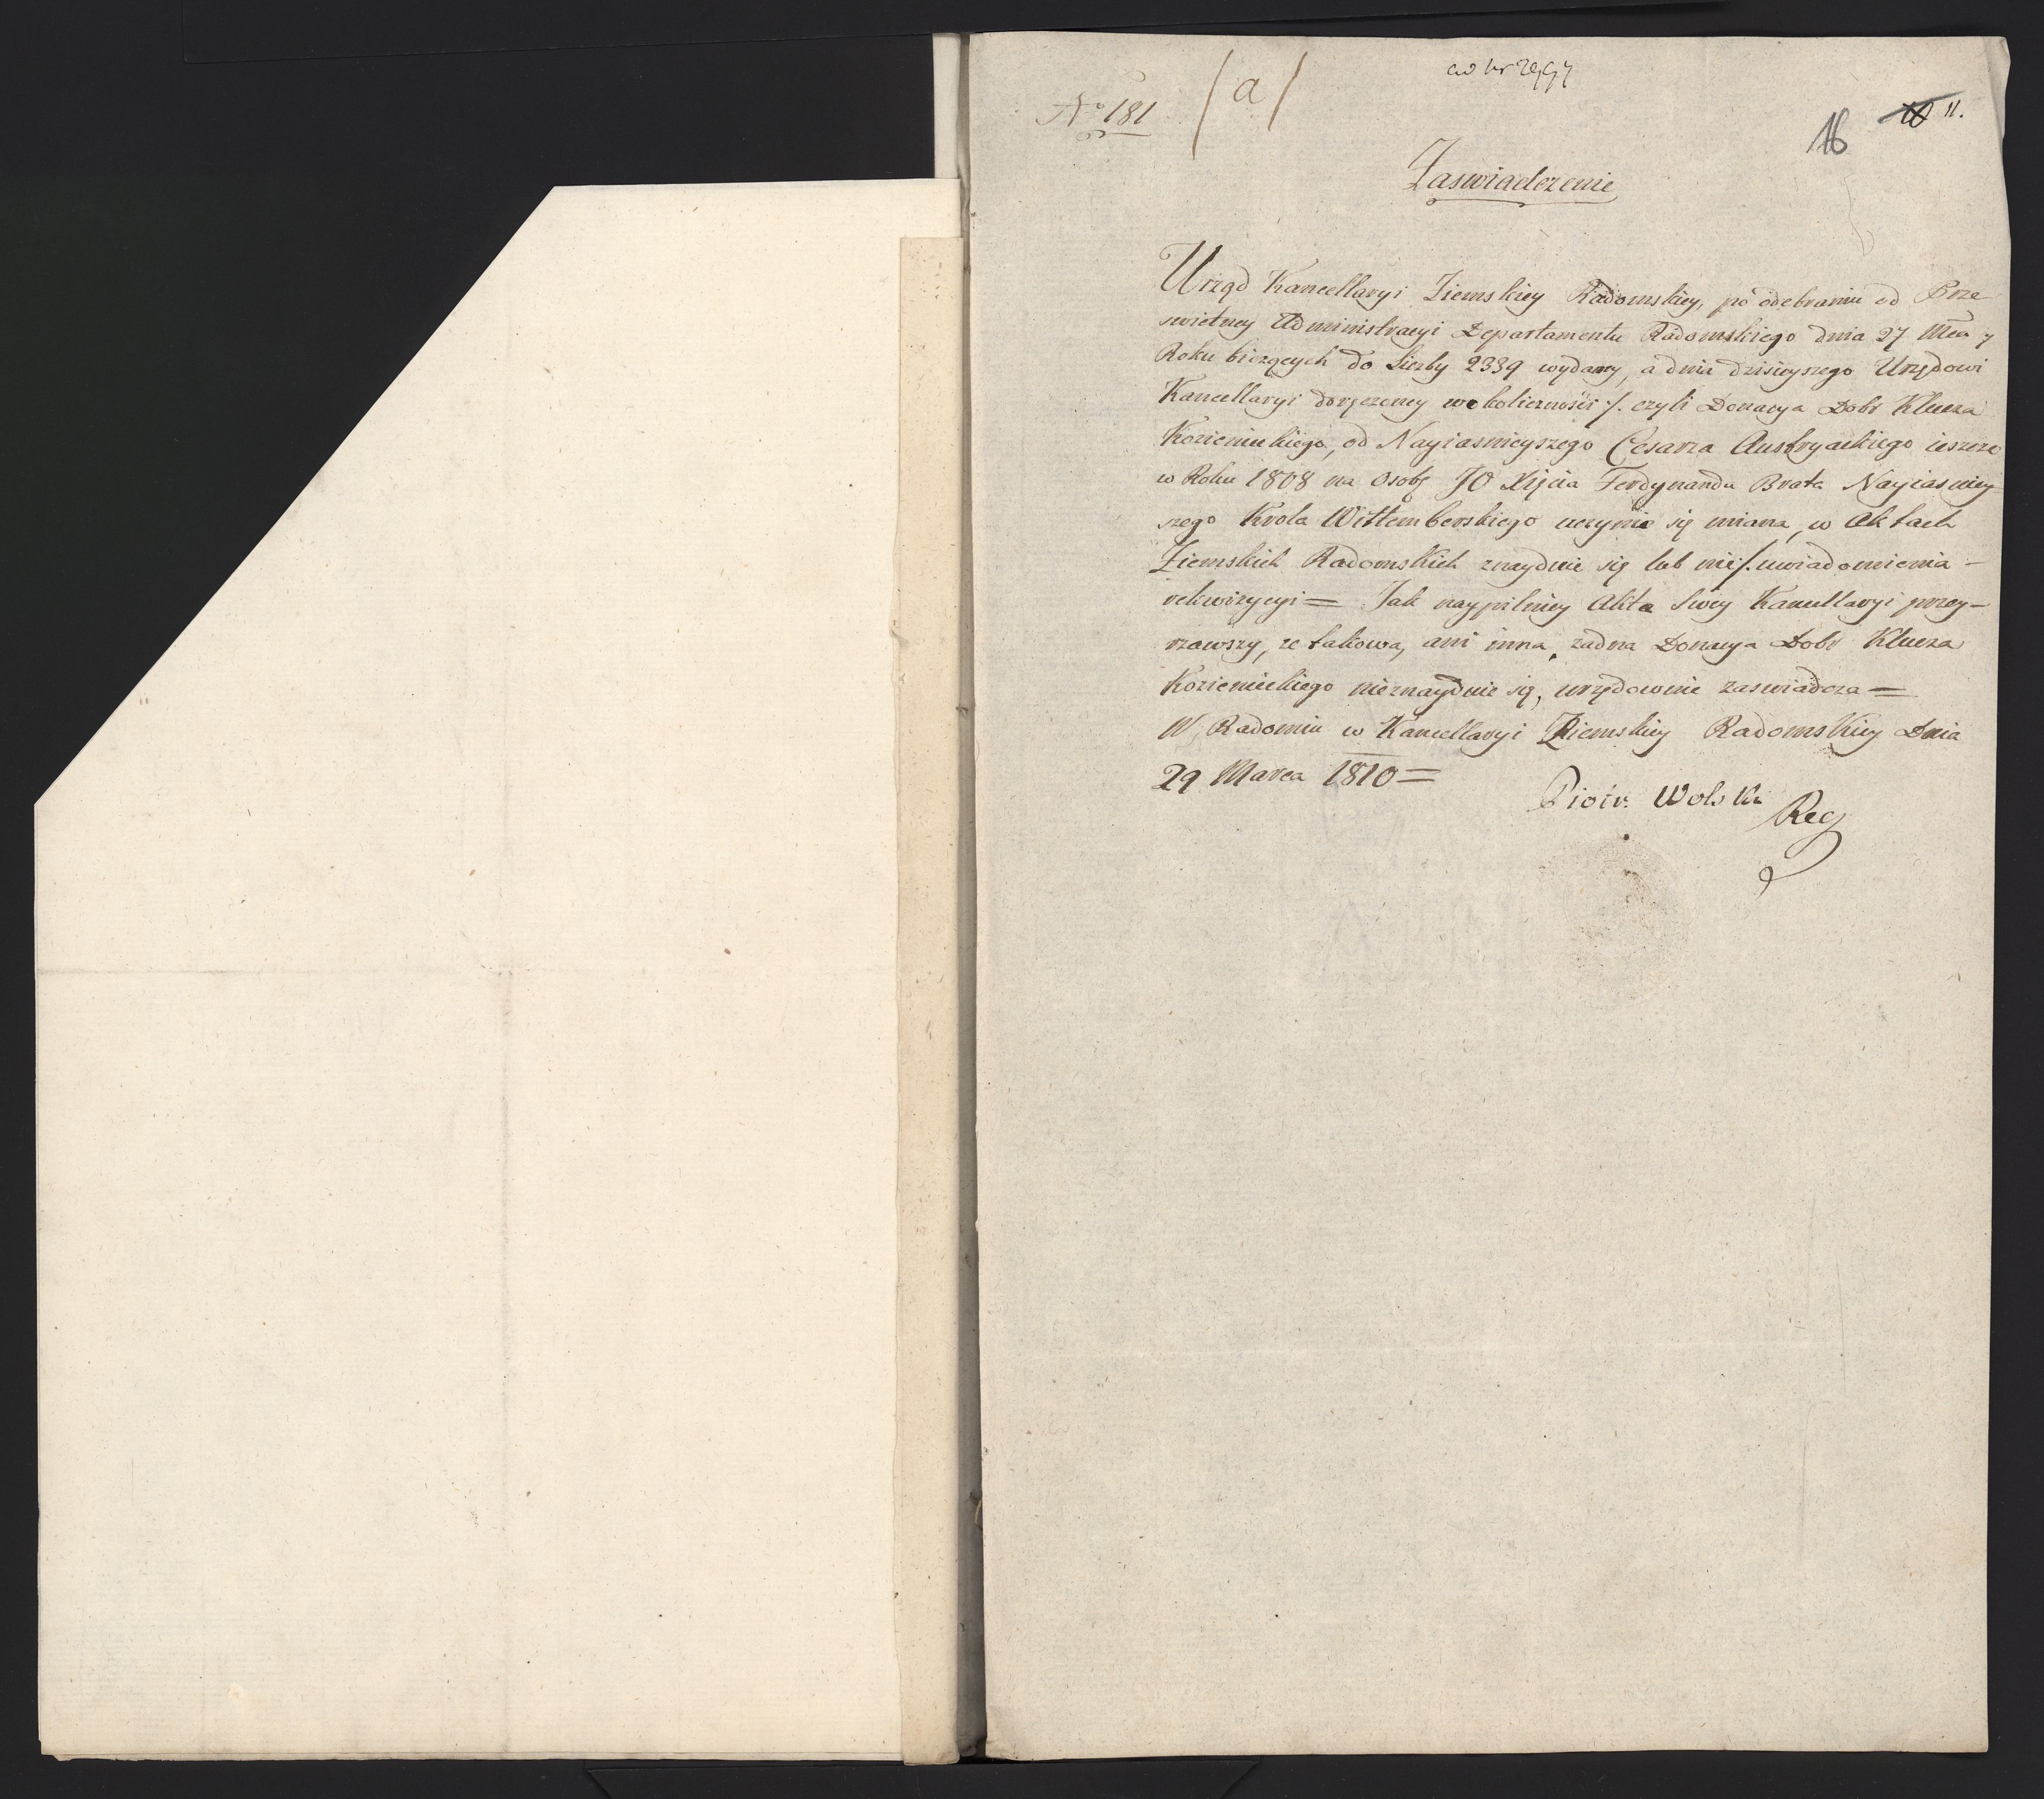 /a/
No 181
ad nr 2997
10 11.
16
Zaswiadczenie
Urząd Kancellaryi Ziemskiey Radomskiey, po odebraniu od Prze
swietney Administracyi Departamentu Radomskiego dnia 27 Mca y
Roku bieżących do Liczby 2339 wydaney, a dnia dzisieyszego Urzędowi
Kancellaryi doręczoney wokoliczności /. czyli Donacya Dobr Klucza
Kozienickiego, od Nayiasnieyszego Cesarza Austryackiego ieszcze
w Roku 1808 na Osobę JO Xięcia Ferdynanda Brata Nayiasniey-
szego Krola Wittemberskiego uczynić się miana, w Aktach
Ziemskich Radomskich znayduie się lub nie /. uwiadomienia -
rekwizycyi = Jak naypilniey Akta Swey Kancellaryi przey-
rzawszy, ze takowa, ani inna, zadna Donacya Dobr Klucza
Kozienickiego nieznayduie się, urzędownie zaswiadcza =
W Radomiu w Kancellaryi Ziemskiey Radomskiey Dnia
29 Marca 1810 =
Piotr Wolski
Reg